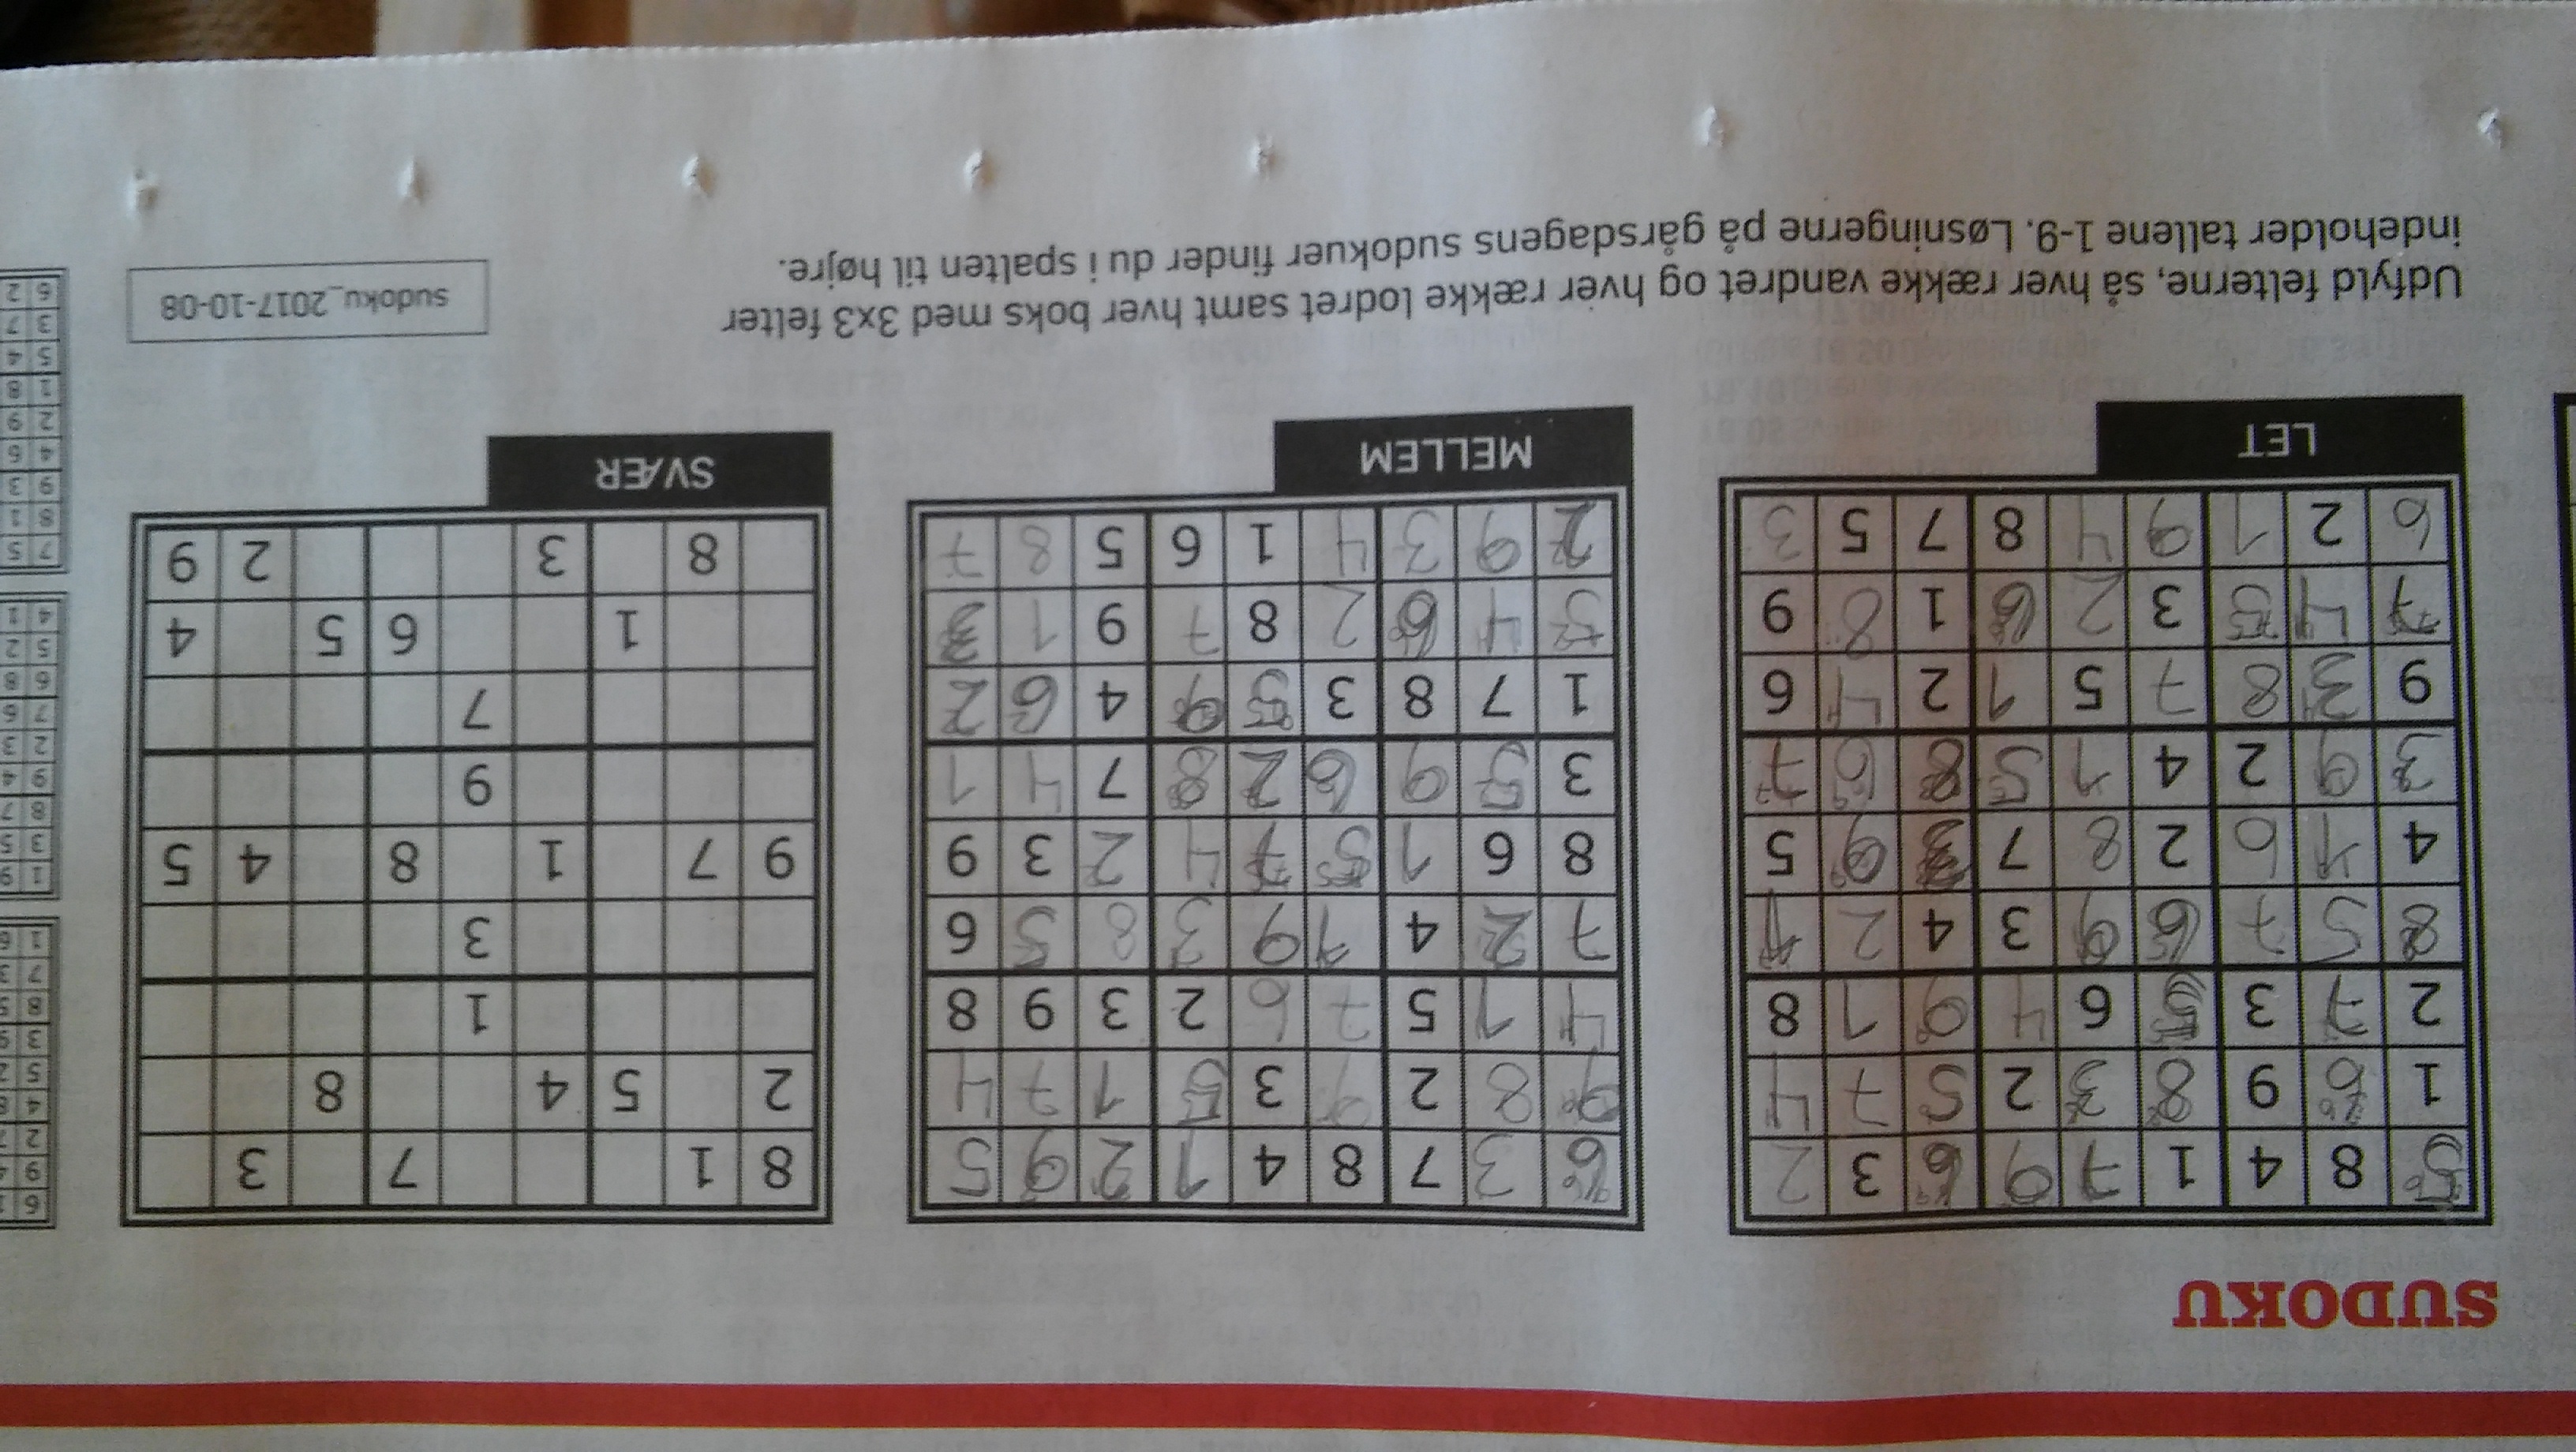 SUDOKU
5 8 4 1 7 9 6 3 2
1 6 9 8 3 2 5 7 4
2 7 3 5 6 4 9 1 8
8 5 7 6 9 3 4 2 1
4 1 6 2 8 7 3 9 5
3 9 2 4 1 5 8 6 7
9 3 8 7 5 1 2 4 6
7 4 5 3 2 6 1 8 9
6 2 1 9 4 8 7 5 3
LET
6 3 7 8 4 1 2 9 5
9 8 2 3 5 1 7 4
4 1 5 7 6 2 3 9 8
7 2 4 1 9 3 8 5 6
8 6 1 5 7 4 2 3 9
3 5 9 6 2 8 7 4 1
1 7 8 3 5 9 4 6 2
5 4 6 2 8 7 9 1 3
2 9 3 4 1 6 5 8 7
MELLEM
8 1 7 3
2 5 4 8
1
3
9 7 1 8 4 5
9
7
1 6 5 4
8 3 2 9
SVÆR
Udfyld felterne, så hver række vandret og hver række lodret samt hver boks med 3x3 felter
indeholder tallene 1-9. Løsningerne på gårsdagens sudokuer finder du i spalten til højre.
sudoku_2017-10-08